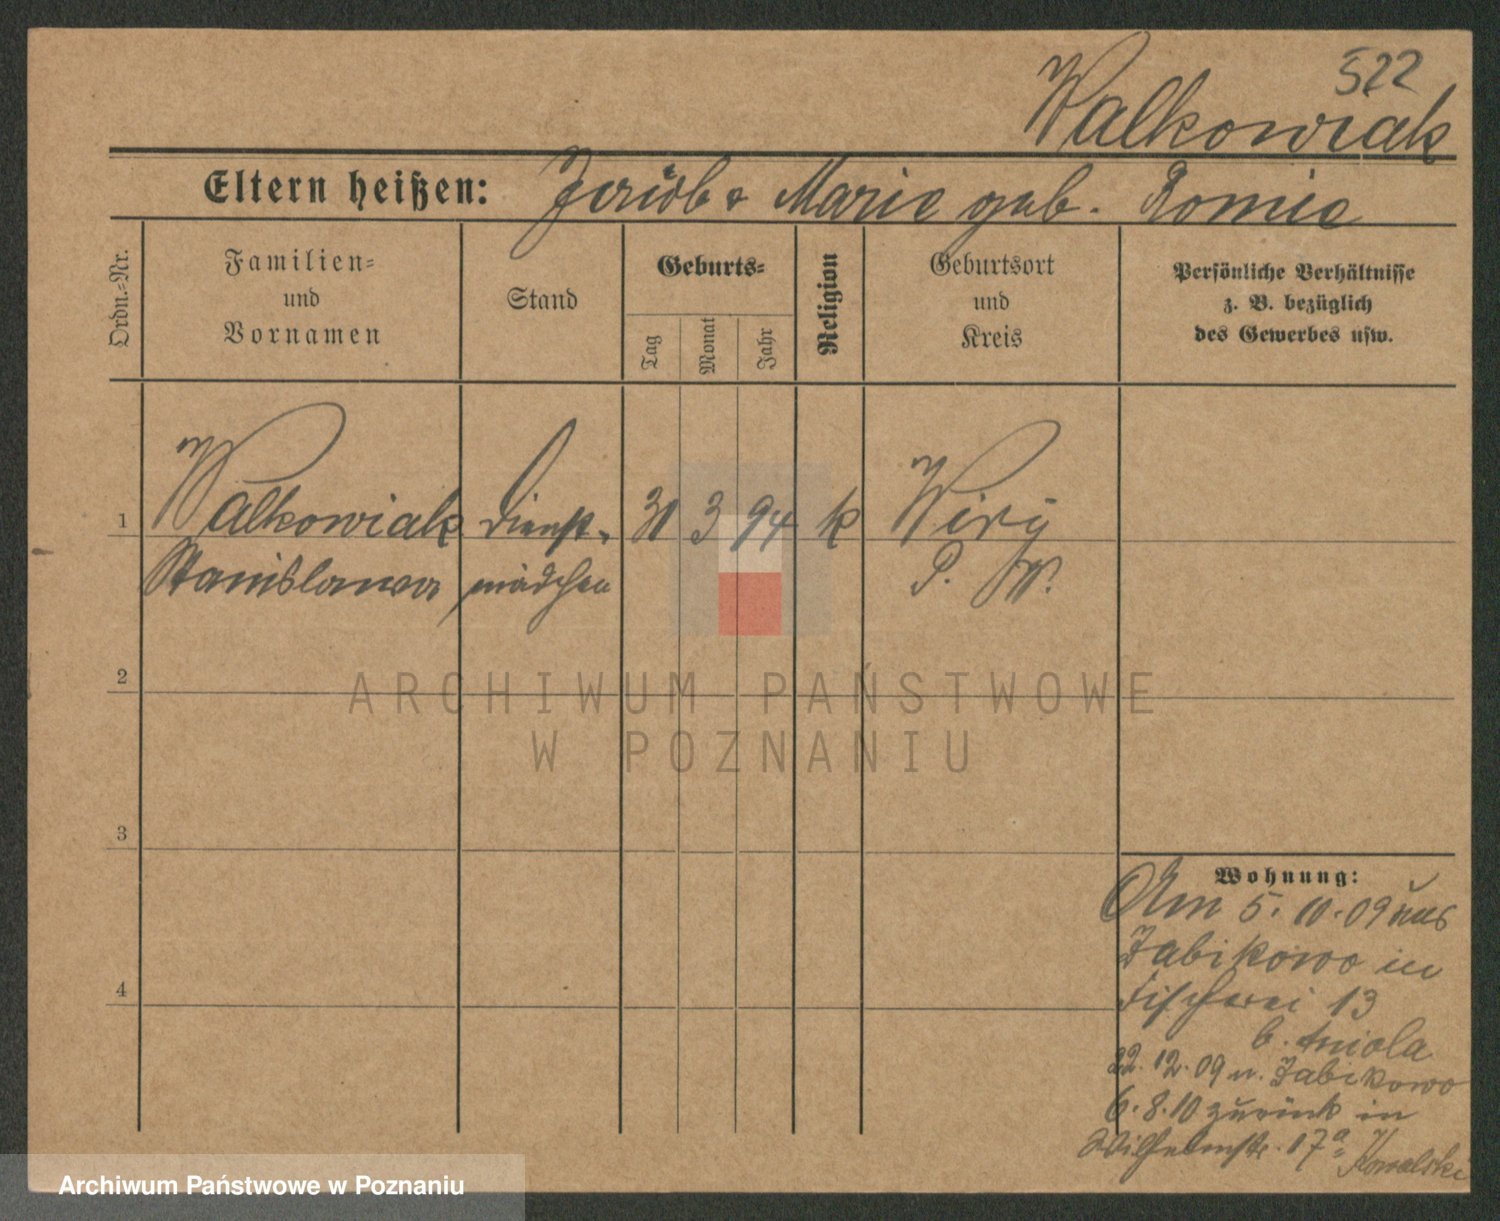 522
Walkowiak
Eltern heißen: Jakob & Marie geb. Romie
Ordn.-Nr.
Familien-
und
Vornamen
Stand
Geburts-
Tag
Monat
Jahr
Religion
Geburtsort
und
Kreis
Persönliche Verhältnisse
z. B. bezüglich
des Gewerbes usw.
1 Walkowiak Dienst- 31 3 94 k Wiry
Stanislawa mädchen P. W.
2
3
4
Wohnung:
Am 5.10.09 aus
Zabikowo in
Fischerei 13
b. Aniola
22.12.09 n. Zabikowo
6.8.10 zurück in
Wilhelmstr. 17a Kowalski
ARCHIWUM PAŃSTWOWE
W POZNANIU
Archiwum Państwowe w Poznaniu